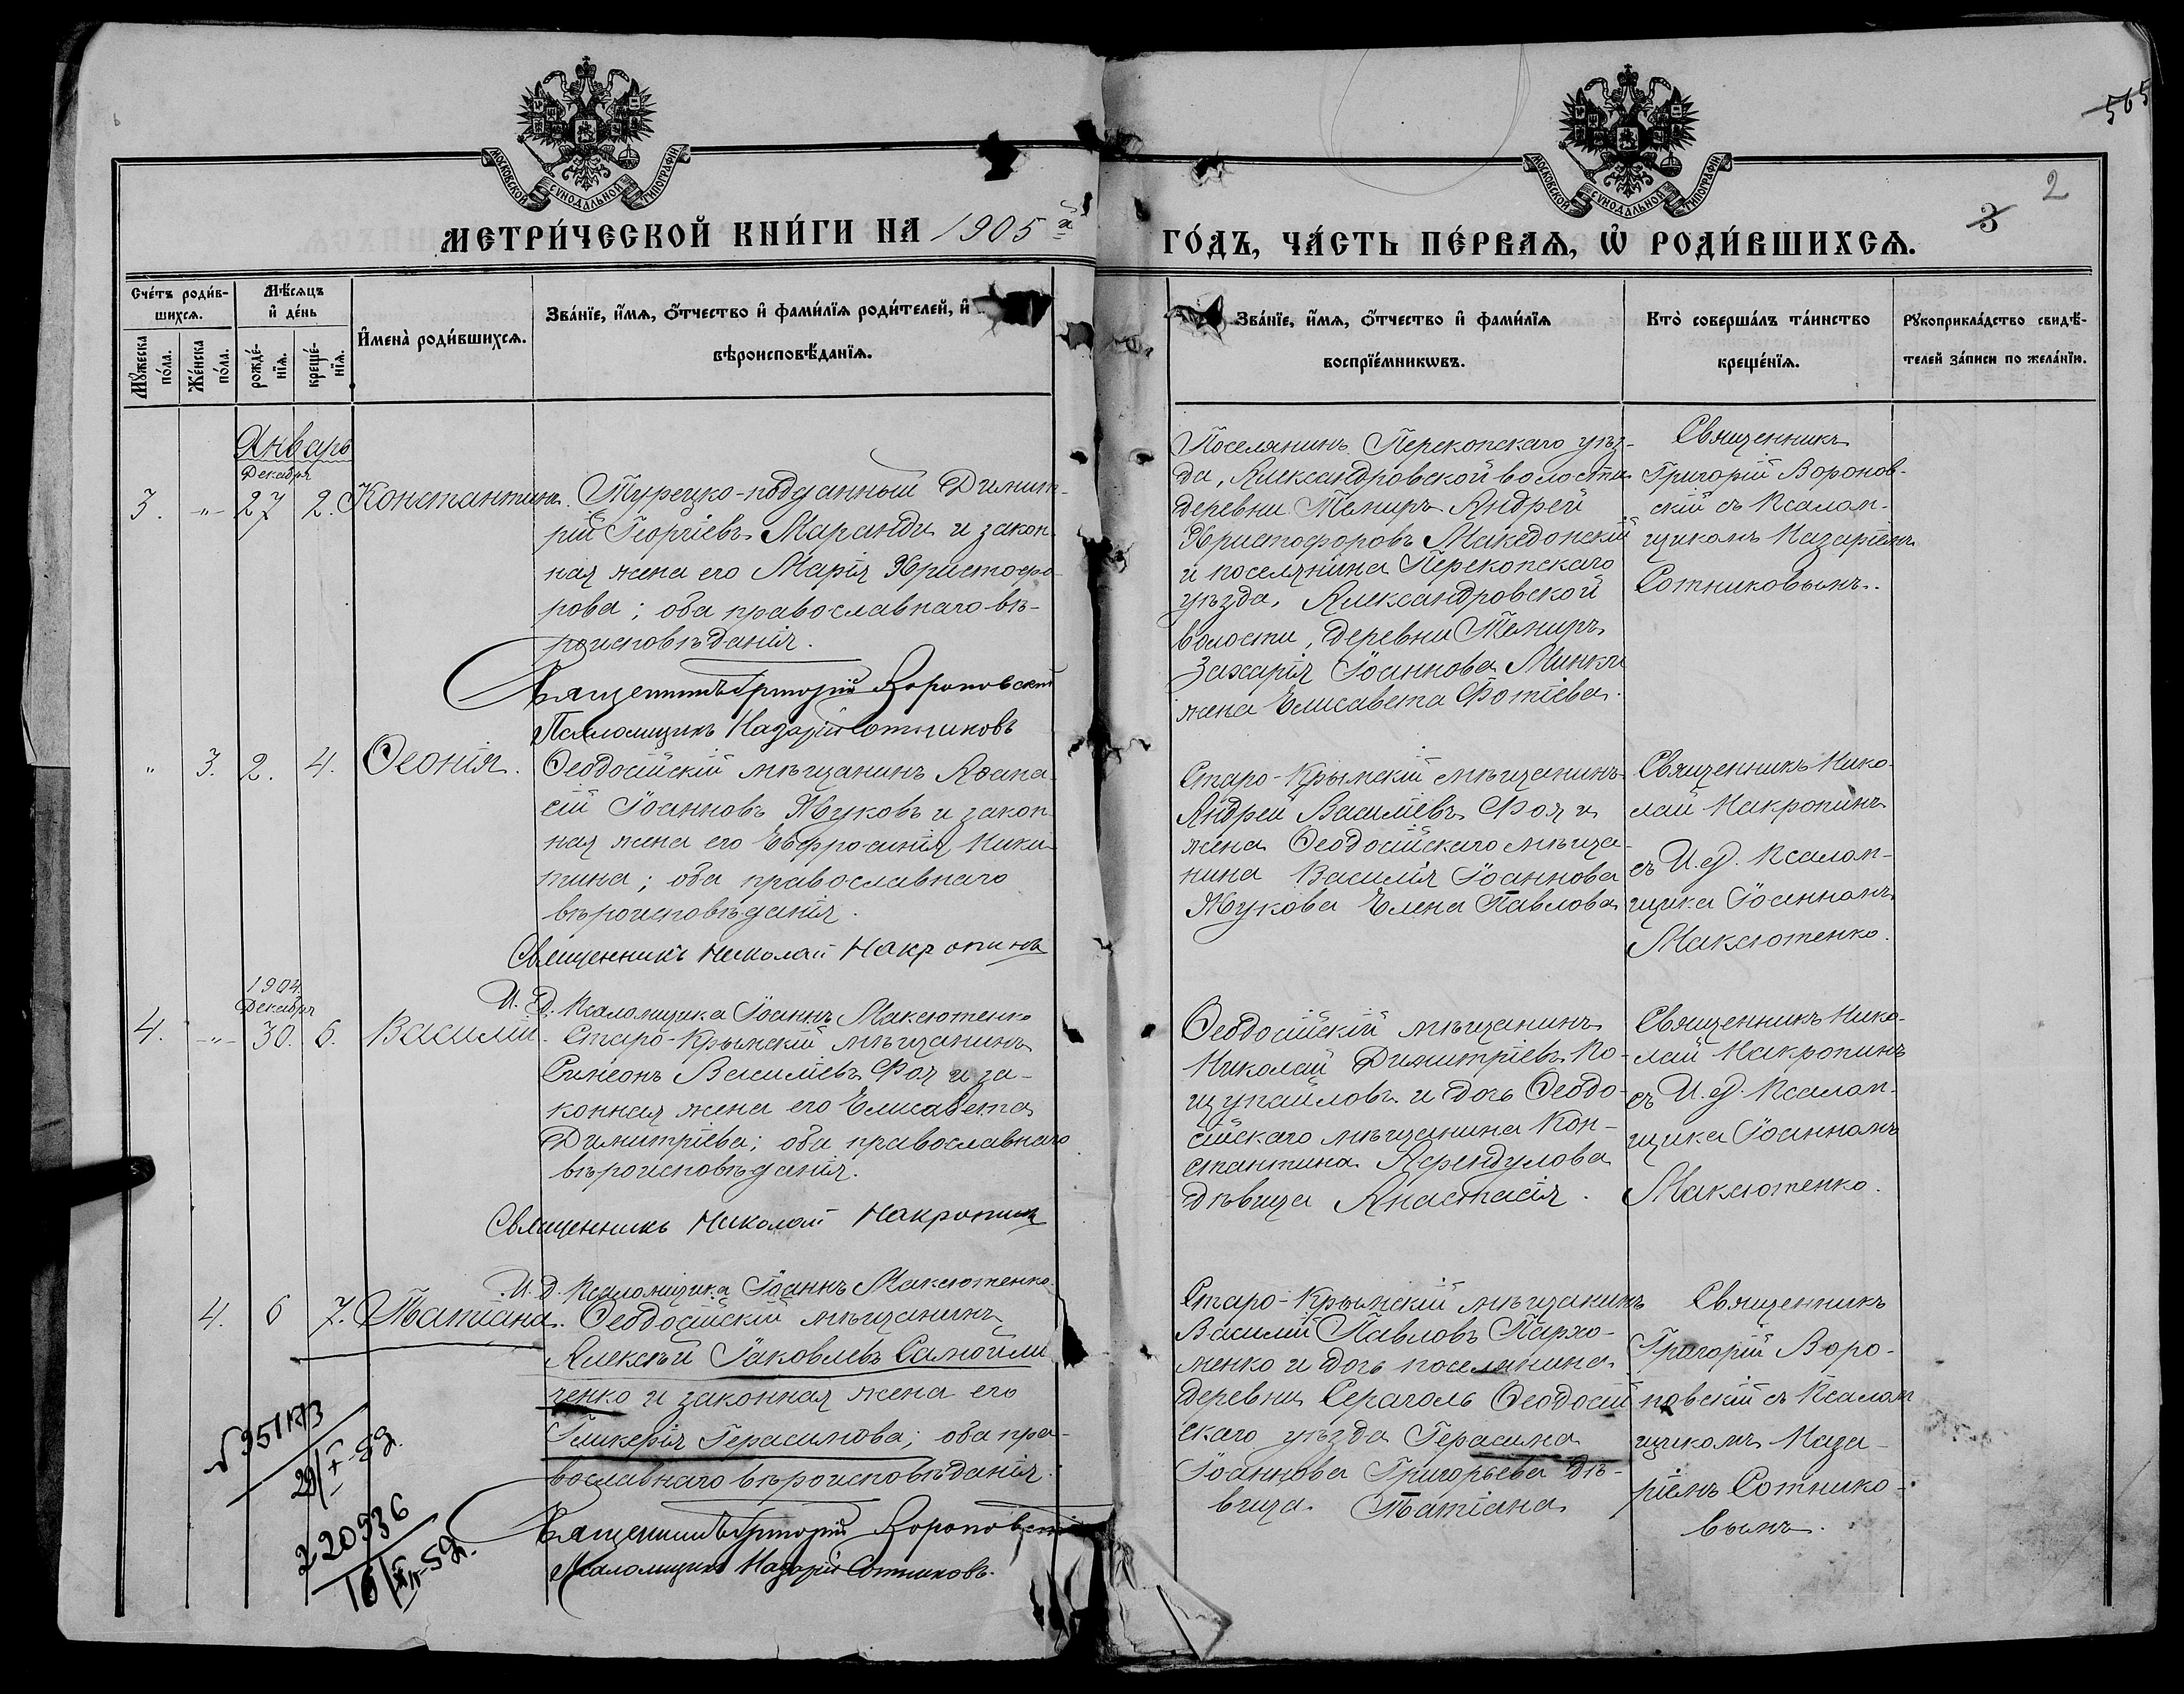 565
2
3
МОСКОВСКОЙ СѴНОДАЛЬНОЙ ТИПОГРАФІИ
МОСКОВСКОЙ СѴНОДАЛЬНОЙ ТИПОГРАФІИ
МЕТРИ́ЧЕСКОЙ КНИ́ГИ НА 1905 й
ГО́ДЪ, ЧА́СТЬ ПЕ́РВАѦ, Ѡ҆ РОДИ́ВШИХСѦ.
Сче́тъ роди́в-
шихсѧ.
Мѣ́сѧцъ
и҆ де́нь
Мꙋ́жеска по́ла.
Же́нска по́ла.
рожде́-
нїѧ.
креще́-
нїѧ.
И҆мена̀ роди́вшихсѧ.
Зва́нїе, и҆́мѧ, ѻ҆́тчество и҆ фами́лїѧ роди́телей, и҆
вѣроисповѣ́данїѧ.
Зва́нїе, и҆́мѧ, ѻ҆́тчество и҆ фами́лїѧ
воспрїе́мникѡвъ.
Кто̀ соверша́лъ та́инство
креще́нїѧ.
Рꙋкоприкла́дство свидѣ́-
телей за́писи по жела́нїю.
Январь
Декабря
3. -"- 27 2. Константинъ.
Турецко-подданный Димит-
рій Георгіевъ Маранди и закон-
ная жена его Марія Христофо-
рова; оба православнаго вѣ-
роисповѣданія.
Священникъ Григорій Вороновскій
Псаломщикъ Назарій Сотниковъ
Поселянинъ Перекопскаго уѣз-
да, Александровской волости
деревни Темиръ Андрей
Христофоровъ Македонскій
и поселянина Перекопскаго
уѣзда, Александровской
волости, деревни Темиръ
Захарія Іоаннова Минки
жена Елисавета Фотіева.
Священникъ
Григорій Воронов-
скій съ Псалом-
щикомъ Назаріемъ
Сотниковымъ.
" 3. 2. 4. Ѳеонія.
Ѳеодосійскій мѣщанинъ Аѳана-
сій Іоанновъ Жуковъ и закон-
ная жена его Евфросинія Ники-
тина; оба православнаго
вѣроисповѣданія.
Священникъ Николай Макропинъ
И. Д. Псаломщика Іоаннъ Максютенко
Старо-Крымскій мѣщанинъ
Андрей Василіевъ Фоя и
жена Ѳеодосійскаго мѣща-
нина Василія Іоаннова
Жукова Елена Павлова
Священникъ Нико-
лай Макропинъ
съ И. д. Псалом-
щика Іоанномъ
Максютенко.
1904.
Декабря
4. -"- 30. 6. Василій.
Старо-Крымскій мѣщанинъ
Симеонъ Василіевъ Фоя и за-
конная жена его Елисавета
Димитріева; оба православнаго
вѣроисповѣданія.
Священникъ Николай Макропинъ
И. Д. Псаломщика Іоаннъ Максютенко.
Ѳеодосійскій мѣщанинъ
Николай Димитріевъ По-
и дочь Ѳеодо-
сійскаго мѣщанина Кон-
стантина Афендулова
дѣвица Анастасія.
Священникъ Нико-
лай Макропинъ
съ И. д. Псалом-
щика Іоанномъ
Максютенко.
4. 6 7. Татіана.
Ѳеодосійскій мѣщанинъ
Алексѣй Іаковлевъ Самойли
ченко и законная жена его
Гликерія Герасимова; оба пра-
вославнаго вѣроисповѣданія.
Священникъ Григорій Вороновскій
Псаломщикъ Назарій Сотниковъ.
Старо-Крымскій мѣщанинъ
Василій Павловъ Пархо-
менко и дочь поселянина
деревни Сераголь Ѳеодосій
скаго уѣзда Герасима
Іоаннова Григорьева дѣ-
вица Татіана
Священникъ
Григорій Воро-
новскій съ Псалом
щикомъ Наза-
ріемъ Сотнико-
вымъ.
220936